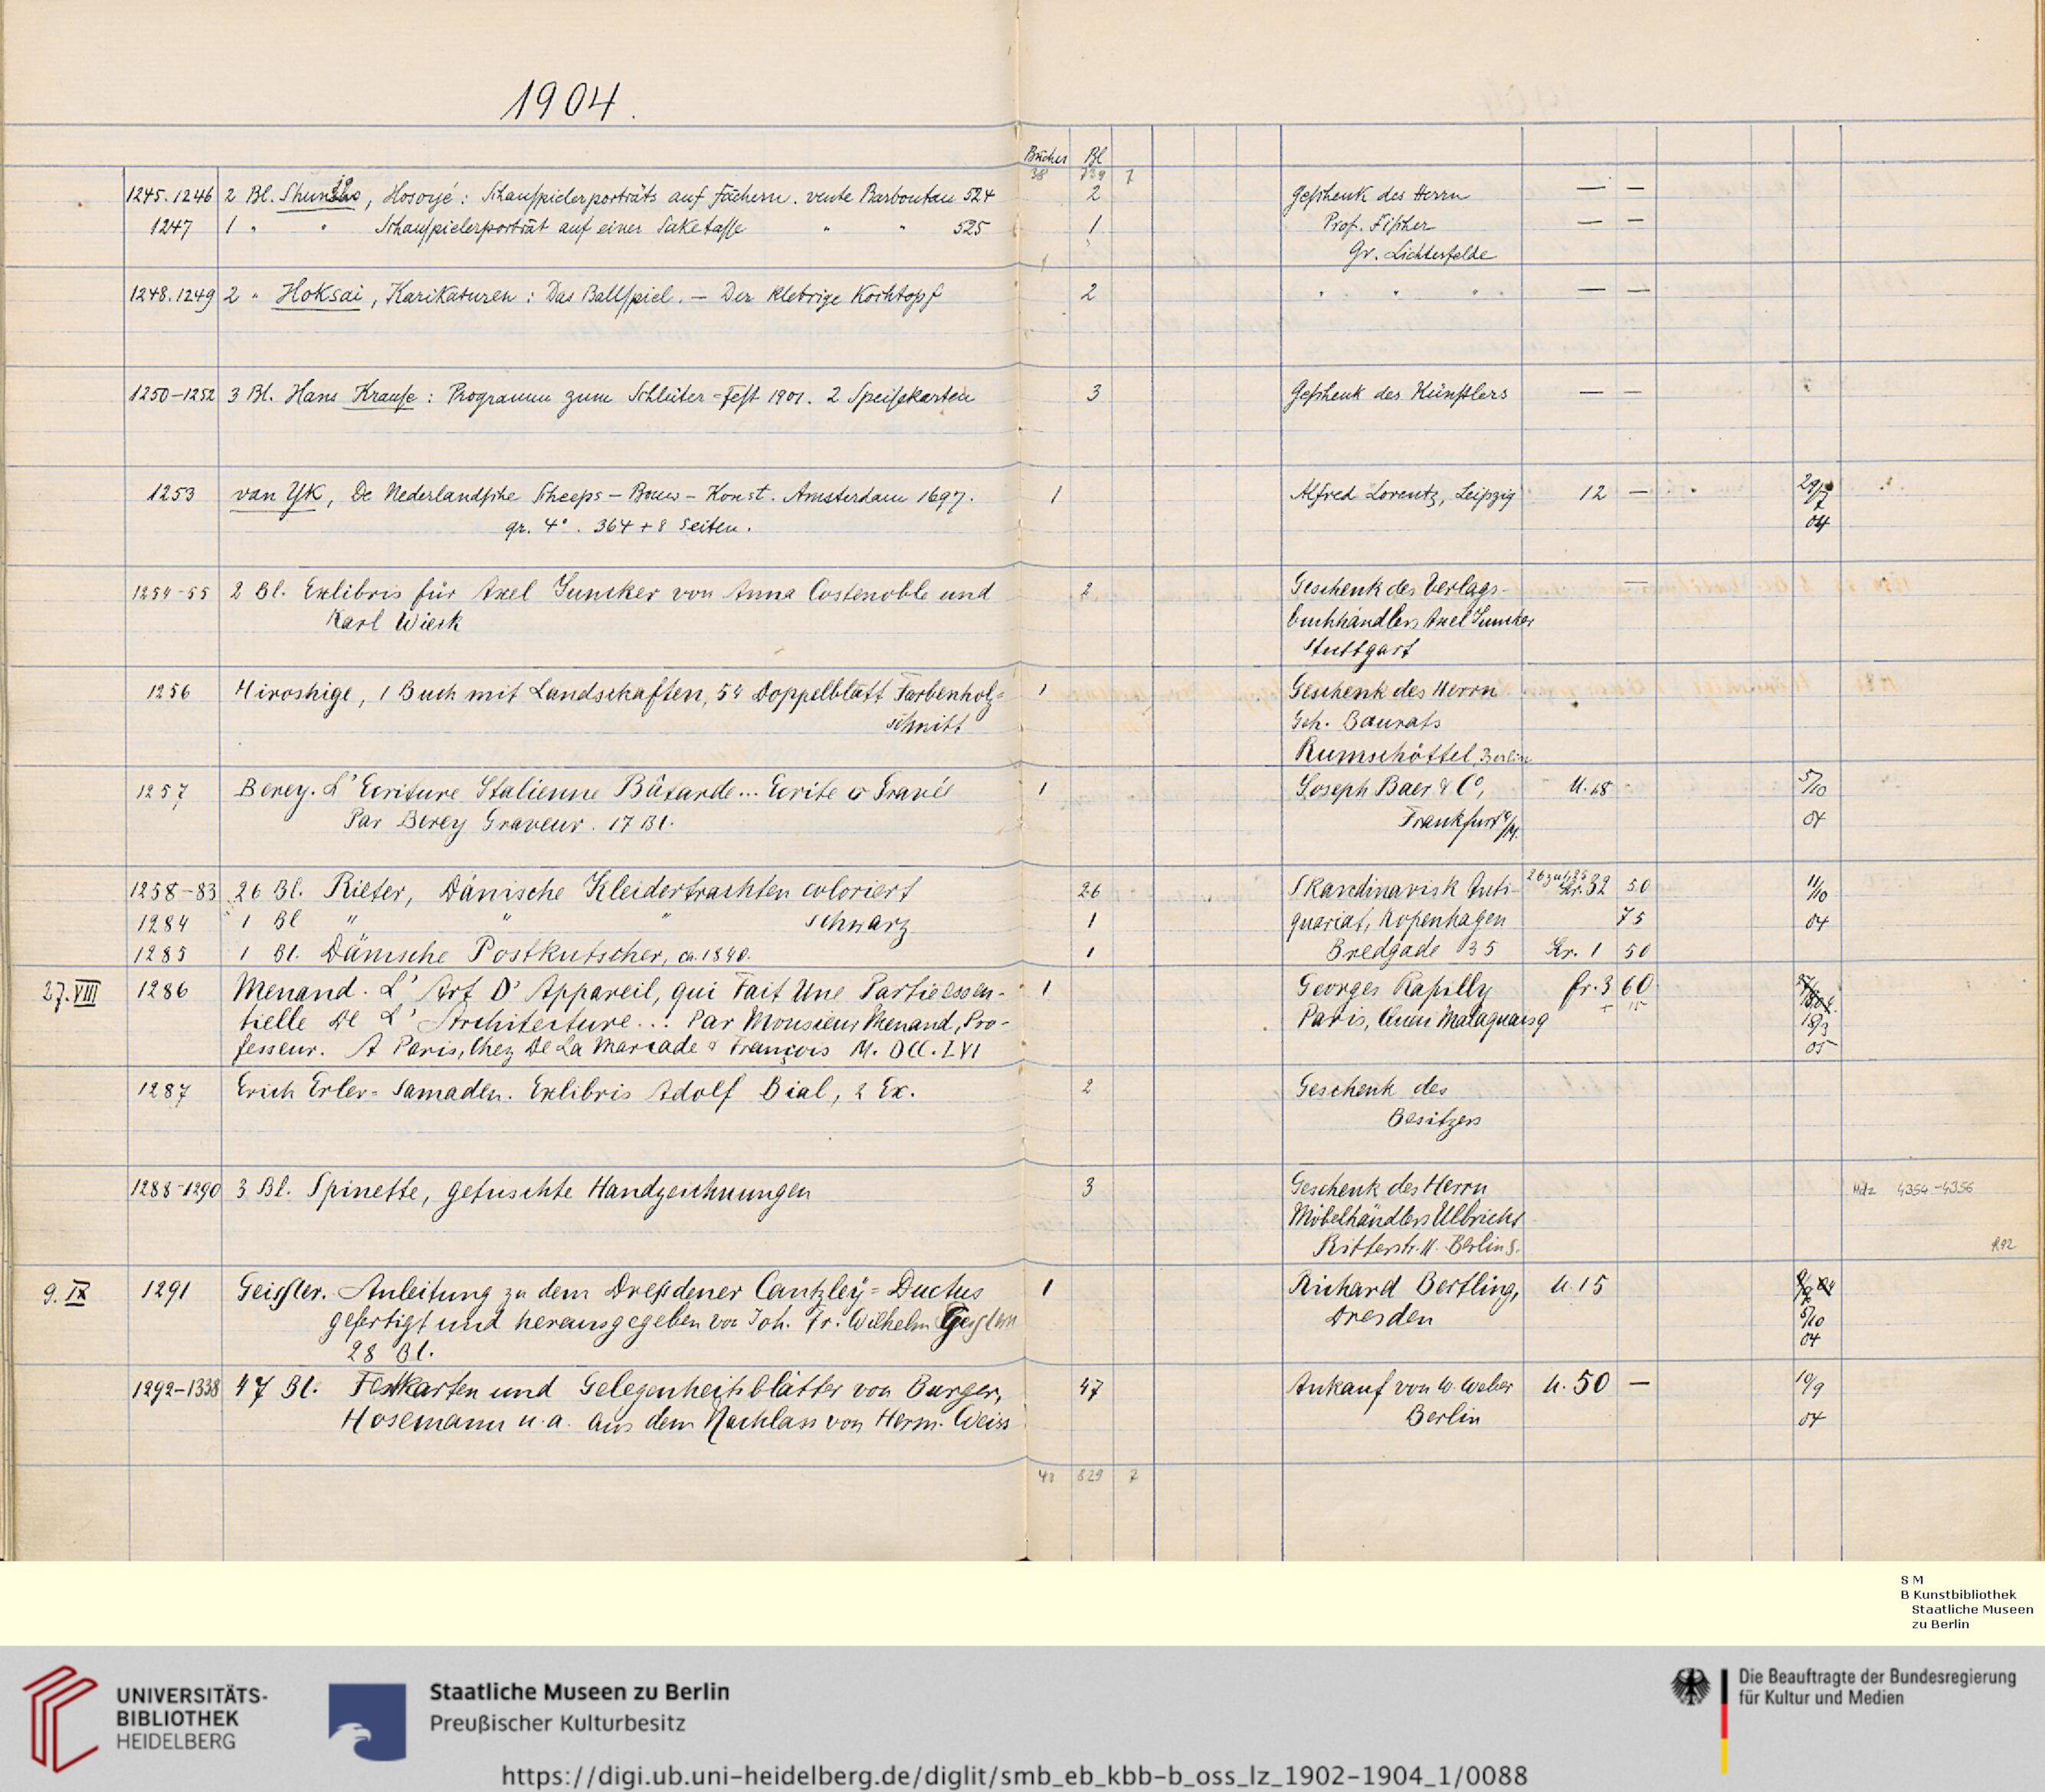 1904.
Bücher Bl
38 739 7
1245.1246 2 Bl. Shunsho, Hosoyé: Schauspielerporträts auf Fächern. vente Barboutau 524 2 Geschenk des Herrn — —
1247 1 " " Schauspielerporträt auf einer Saketasse " " 525 1 Prof. Fischer — —
Gr. Lichterfelde
1248.1249 2 " Hoksai, Karikaturen: Das Ballspiel. — Der klebrige Kochtopf 2 " " " — —
1250–1252 3 Bl. Hans Krause: Programm zum Schlüter=Fest 1901. 2 Speisekarten 3 Geschenk des Künstlers — —
1253 van YK, De Nederlandsche Scheeps–Bouw–Konst. Amsterdam 1697. 1 Alfred Lorentz, Leipzig 12 — 29/7
gr. 4°. 364 + 8 Seiten. 04
1254-55 2 Bl. Exlibris für Axel Juncker von Anna Costenoble und 2 Geschenk des Verlags- —
Karl Wieck buchhändlers Axel Juncker
Stuttgart
1256 Hiroshige, 1 Buch mit Landschaften, 54 Doppelblatt Farbenholz= 1 Geschenk des Herrn
schnitt Geh. Baurats
Rumschöttel, Berlin
1257 Berey. L'Ecriture Italienne Bâtarde... Ecrite & Gravée 1 Joseph Baer & Co, M. 18 - 5/10
Par Berey Graveur. 17 Bl. Frankfurt a/M. 04
1258–83 26 Bl. Rieter, Dänische Kleidertrachten coloriert 26 Skandinavisk Anti- 26 zu 1,25 Kr. 32 50 11/10
1284 1 Bl " " " schwarz 1 quariat, Kopenhagen 75 04
1285 1 Bl. Dänische Postkutscher, ca. 1840. 1 Bredgade 35 Kr. 1 50
27.VIII 1286 Menand. L'Art D'Appareil, qui Fait Une Partie essen- 1 Georges Rapilly fr. 3 60
tielle De L'Architecture... Par Monsieur Menand, Pro- Paris, Quai Malaquais 9 + 15 18/3
fesseur. A Paris, Chez De La Marcade & François M.DCC.LVI 05
1287 Erich Erler-Samaden. Exlibris Adolf Bial, 2 Ex. 2 Geschenk des
Besitzers
1288-1290 3 Bl. Spinette, getuschte Handzeichnungen 3 Geschenk des Herrn Hdz 4354-4356
Möbelhändlers Ulbricht
Ritterstr. 11. Berlin S.
9.IX 1291 Geissler. Anleitung zu dem Dresdener Cantzley=Ductus 1 Richard Bertling, M. 15
gefertigt und herausgegeben von Joh. Fr. Wilhelm Geisslern Dresden 5/10
28 Bl. 04
1292–1338 47 Bl. Festkarten und Gelegenheitsblätter von Burger, 47 Ankauf von W. Weber M. 50 — 10/9
Hosemann u.a. aus dem Nachlass von Herm. Weiss Berlin 04
42 829 7
S M
B Kunstbibliothek
Staatliche Museen
zu Berlin
UNIVERSITÄTS-
BIBLIOTHEK
HEIDELBERG
Staatliche Museen zu Berlin
Preußischer Kulturbesitz
Die Beauftragte der Bundesregierung
für Kultur und Medien
https://digi.ub.uni-heidelberg.de/diglit/smb_eb_kbb-b_oss_lz_1902-1904_1/0088